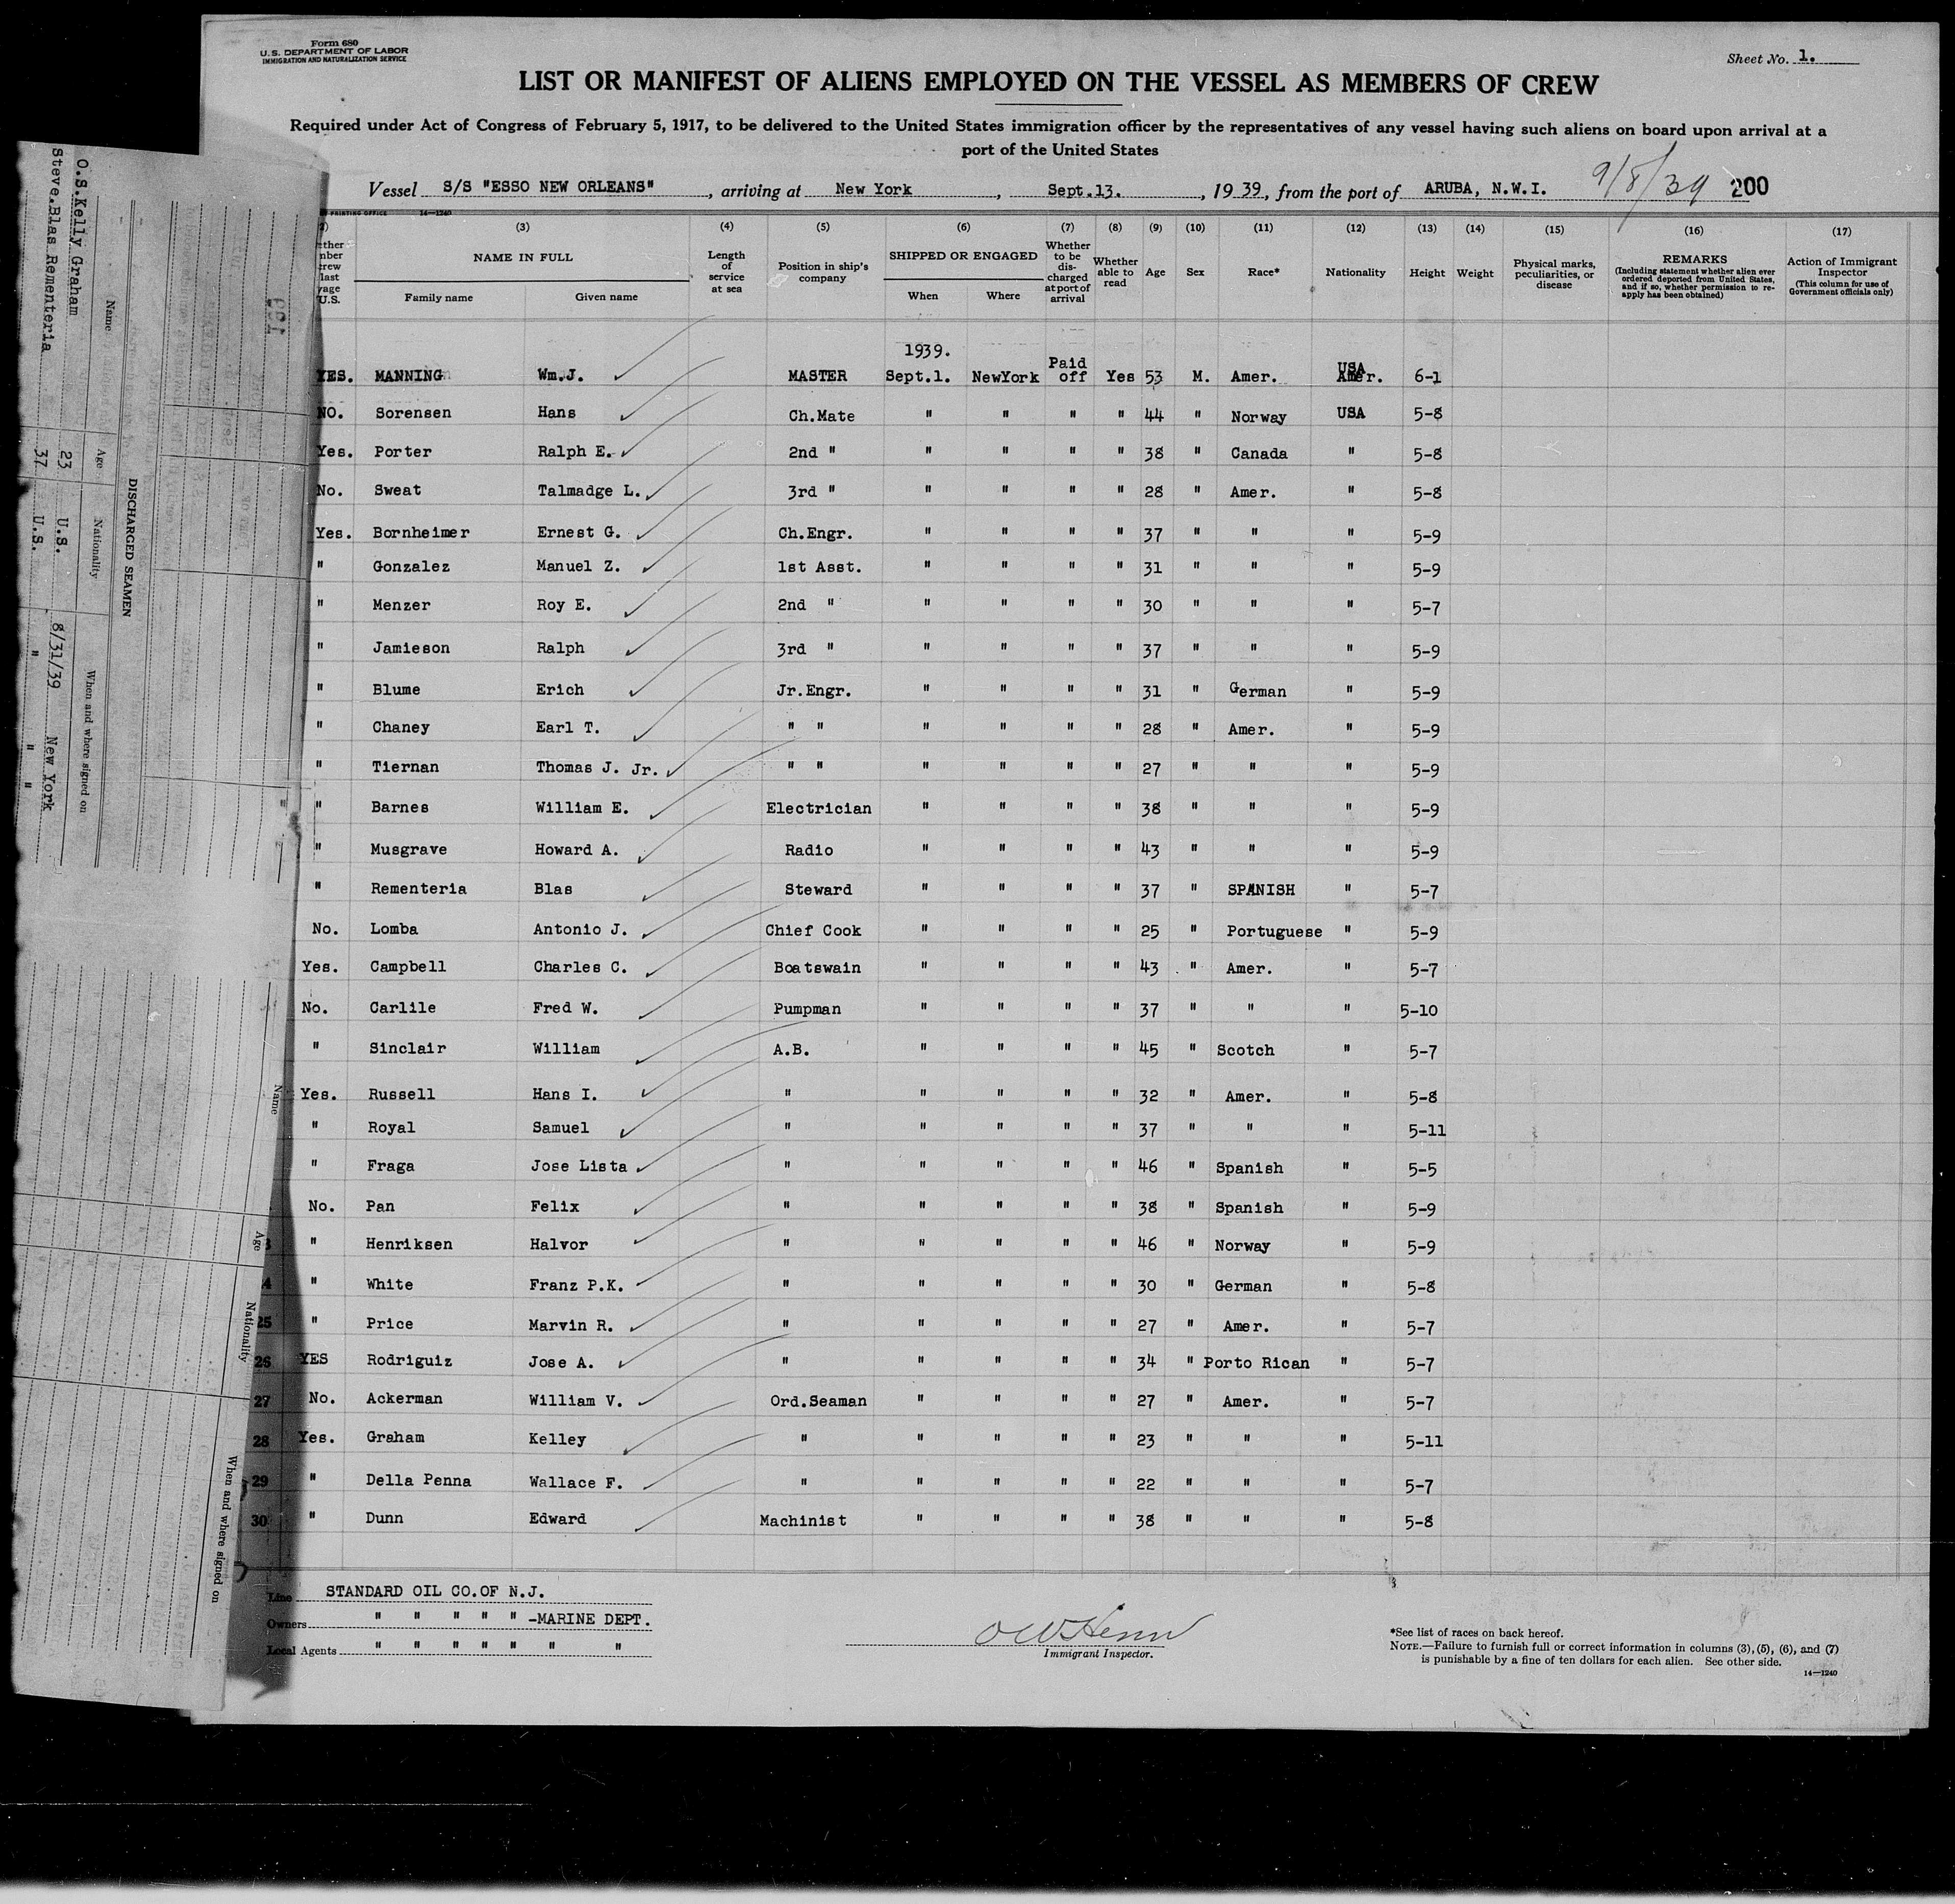 Form 680
U. S. DEPARTMENT OF LABOR
IMMIGRATION AND NATURALIZATION SERVICE
Sheet No. 1.
LIST OR MANIFEST OF ALIENS EMPLOYED ON THE VESSEL AS MEMBERS OF CREW
Required under Act of Congress of February 5, 1917, to be delivered to the United States immigration officer by the representatives of any vessel having such aliens on board upon arrival at a
port of the United States
Vessel S/S "ESSO NEW ORLEANS", arriving at New York, Sept.13., 1939, from the port of ARUBA, N.W.I. 9/8/39 200
PRINTING OFFICE 14—1240
(3) (4) (5) (6) (7) (8) (9) (10) (11) (12) (13) (14) (15) (16) (17)
NAME IN FULL
Family name Given name
Length of service at sea
Position in ship's company
SHIPPED OR ENGAGED
When Where
Whether to be discharged at port of arrival
Whether able to read
Age Sex Race* Nationality Height Weight
Physical marks, peculiarities, or disease
REMARKS
(Including statement whether alien ever ordered deported from United States, and if so, whether permission to reapply has been obtained)
Action of Immigrant Inspector
(This column for use of Government officials only)
1939.
YES. MANNING Wm.J. MASTER Sept.1. NewYork Paid off Yes 53 M. Amer. USA Amer. 6-1
NO. Sorensen Hans Ch.Mate " " " " 44 " Norway USA 5-8
Yes. Porter Ralph E. 2nd " " " " " 38 " Canada " 5-8
No. Sweat Talmadge L. 3rd " " " " " 28 " Amer. " 5-8
Yes. Bornheimer Ernest G. Ch.Engr. " " " " 37 " " " 5-9
" Gonzalez Manuel Z. 1st Asst. " " " " 31 " " " 5-9
" Menzer Roy E. 2nd " " " " " 30 " " " 5-7
" Jamieson Ralph 3rd " " " " " 37 " " " 5-9
" Blume Erich Jr.Engr. " " " " 31 " German " 5-9
" Chaney Earl T. " " " " " " 28 " Amer. " 5-9
" Tiernan Thomas J. Jr. " " " " " " 27 " " " 5-9
" Barnes William E. Electrician " " " " 38 " " " 5-9
" Musgrave Howard A. Radio " " " " 43 " " " 5-9
" Rementeria Blas Steward " " " " 37 " SPANISH " 5-7
No. Lomba Antonio J. Chief Cook " " " " 25 " Portuguese " 5-9
Yes. Campbell Charles C. Boatswain " " " " 43 " Amer. " 5-7
No. Carlile Fred W. Pumpman " " " " 37 " " " 5-10
" Sinclair William A.B. " " " " 45 " Scotch " 5-7
Yes. Russell Hans I. " " " " " 32 " Amer. " 5-8
" Royal Samuel " " " " " 37 " " " 5-11
" Fraga Jose Lista " " " " " 46 " Spanish " 5-5
No. Pan Felix " " " " " 38 " Spanish " 5-9
" Henriksen Halvor " " " " " 46 " Norway " 5-9
4 " White Franz P.K. " " " " " 30 " German " 5-8
25 " Price Marvin R. " " " " " 27 " Amer. " 5-7
26 YES Rodriguiz Jose A. " " " " " 34 " Porto Rican " 5-7
27 No. Ackerman William V. Ord.Seaman " " " " 27 " Amer. " 5-7
28 Yes. Graham Kelley " " " " " 23 " " " 5-11
29 " Della Penna Wallace F. " " " " " 22 " " " 5-7
30 " Dunn Edward Machinist " " " " 38 " " " 5-8
Line STANDARD OIL CO.OF N.J.
Owners " " " " " -MARINE DEPT.
Local Agents " " " " " " "
Immigrant Inspector.
*See list of races on back hereof.
NOTE.—Failure to furnish full or correct information in columns (3), (5), (6), and (7)
is punishable by a fine of ten dollars for each alien. See other side.
14—1240
DISCHARGED SEAMEN
Name Age Nationality When and where signed on
O.S.Kelly Graham 23 U.S. 8/31/39 New York
Steve.Blas Rementeria 37 U.S. " " "
Name Age Nationality When and where signed on